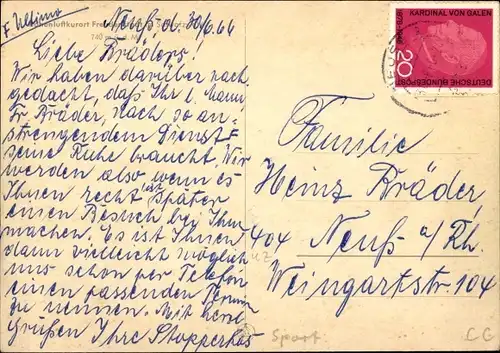 Neuß, d. 30/6.66
Höhenluftkurort Fre
740 m ü. d. M.
Liebe Bräders!
Wir haben darüber nach-
gedacht, daß Ihr l. Mann,
Hr. Bräder, nach so an-
strengendem Dienst
seine Ruhe braucht. Wir
werden also wenn es
Ihnen recht ist später
einen Besuch bei Ihnen
machen. Es ist Ihnen
dann vielleicht möglich
uns schon per Telefon
einen passenden Termin
zu nennen. Mit herzl.
Grüßen Ihre
KARDINAL VON GALEN
1878 1946
20
DEUTSCHE BUNDESPOST
Familie
Heinz Bräder
404 Neuß a/Rh.
Weingartstr. 104
Sport
CG